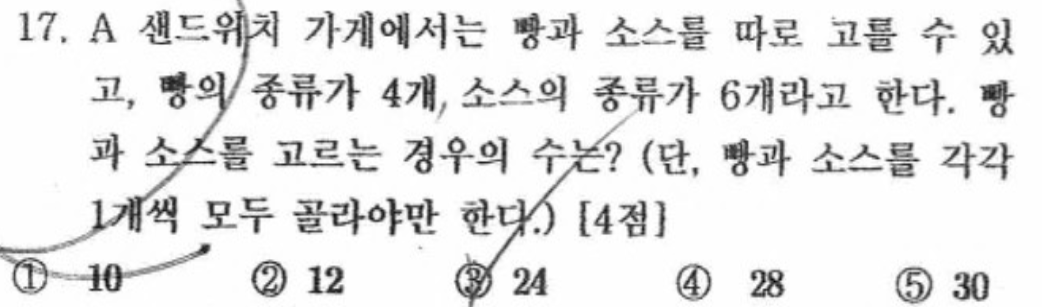 17. A 샌드위치 가게에서는 빵과 소스를 따로 고를 수 있
고, 빵의 종류가 4개, 소스의 종류가 6개라고 한다. 빵
과 소스를 고르는 경우의 수는? (단, 빵과 소스를 각각
1개씩 모두 골라야만 한다.) [4점]
① 10 ② 12 ③ 24 ④ 28 ⑤ 30